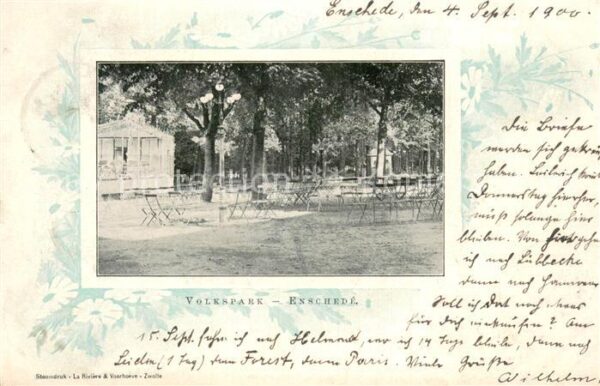 Enschede, den 4. Sept. 1900.
Die Briefe
werden sich gekreuzt
haben.
Donnerstag hierher,
muß solange hier
bleiben. Von hier gehe
ich nach Lübbecke
dann nach Hannover
Soll ich dort noch etwas
für Dich
15. Sept. fahre ich nach Helmond, wo ich 14 Tage bleibe, dann nach
(1 Tag) dann Forest, dann Paris. Viele Grüße
Wilhelm.
VOLKSPARK — ENSCHEDÉ.
Stoomdruk - La Rivière & Voorhoeve - Zwolle